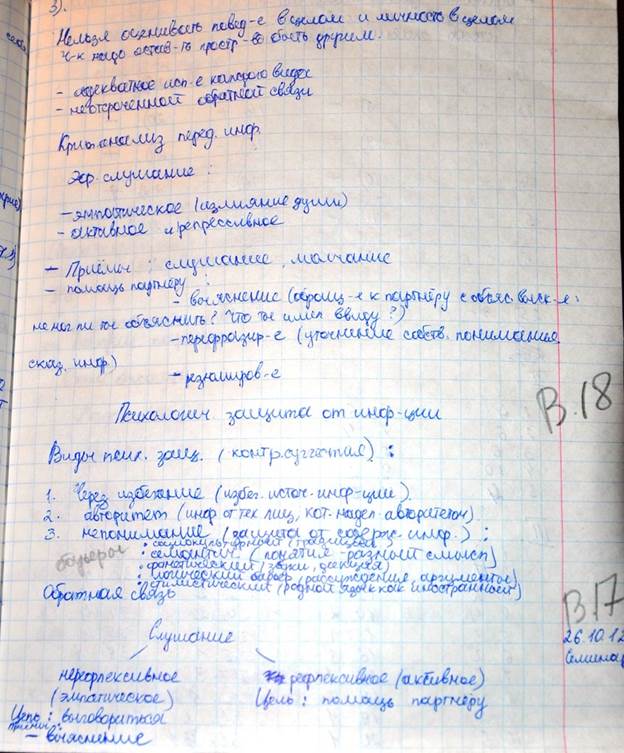 3).
Нельзя оценивать повед-е в целом и личность в целом
Ч-к надо остав-ть простр-во быть другим.
- адекватное исп-е каждого вида
- неотсроченной обратной связи
Крит. анализ перед. инф.
Эф. слушание :
- эмпатическое (излияние души)
- активное и репрессивное
- Приёмы : слушание, молчание
- помощь партнёру :
- выяснение (обращ-е к партнёру с объяс. выск-е:
не мог ли ты объяснить? Что ты имел ввиду?)
- перефразир-е (уточнение собств. понимания
сказ. инф.)
- резюмиров-е
Психологич. защита от инф-ции
В.18
Виды псих. защ. (контр.суггестия) :
1. Через избежание (избег. источ. инф-ции)
2. авторитет (инф. от тех лиц, кот. надел. авторитетом)
3. непонимание (защита от содерж. инф.) :
барьеры
: социокультурный (традиции)
: семантич. (понятие - разный смысл)
: фонетический (звуки, дикция)
: логический барьер (рассуждение, аргументы)
: стилистический (родной язык как иностранный)
Обратная связь
В.17
26.10.12
Семинар
Слушание
нерефлексивное рефлексивное (активное)
(эмпатическое) Цель : помощь партнёру
Цель : выговориться
приёмы:
- выяснение